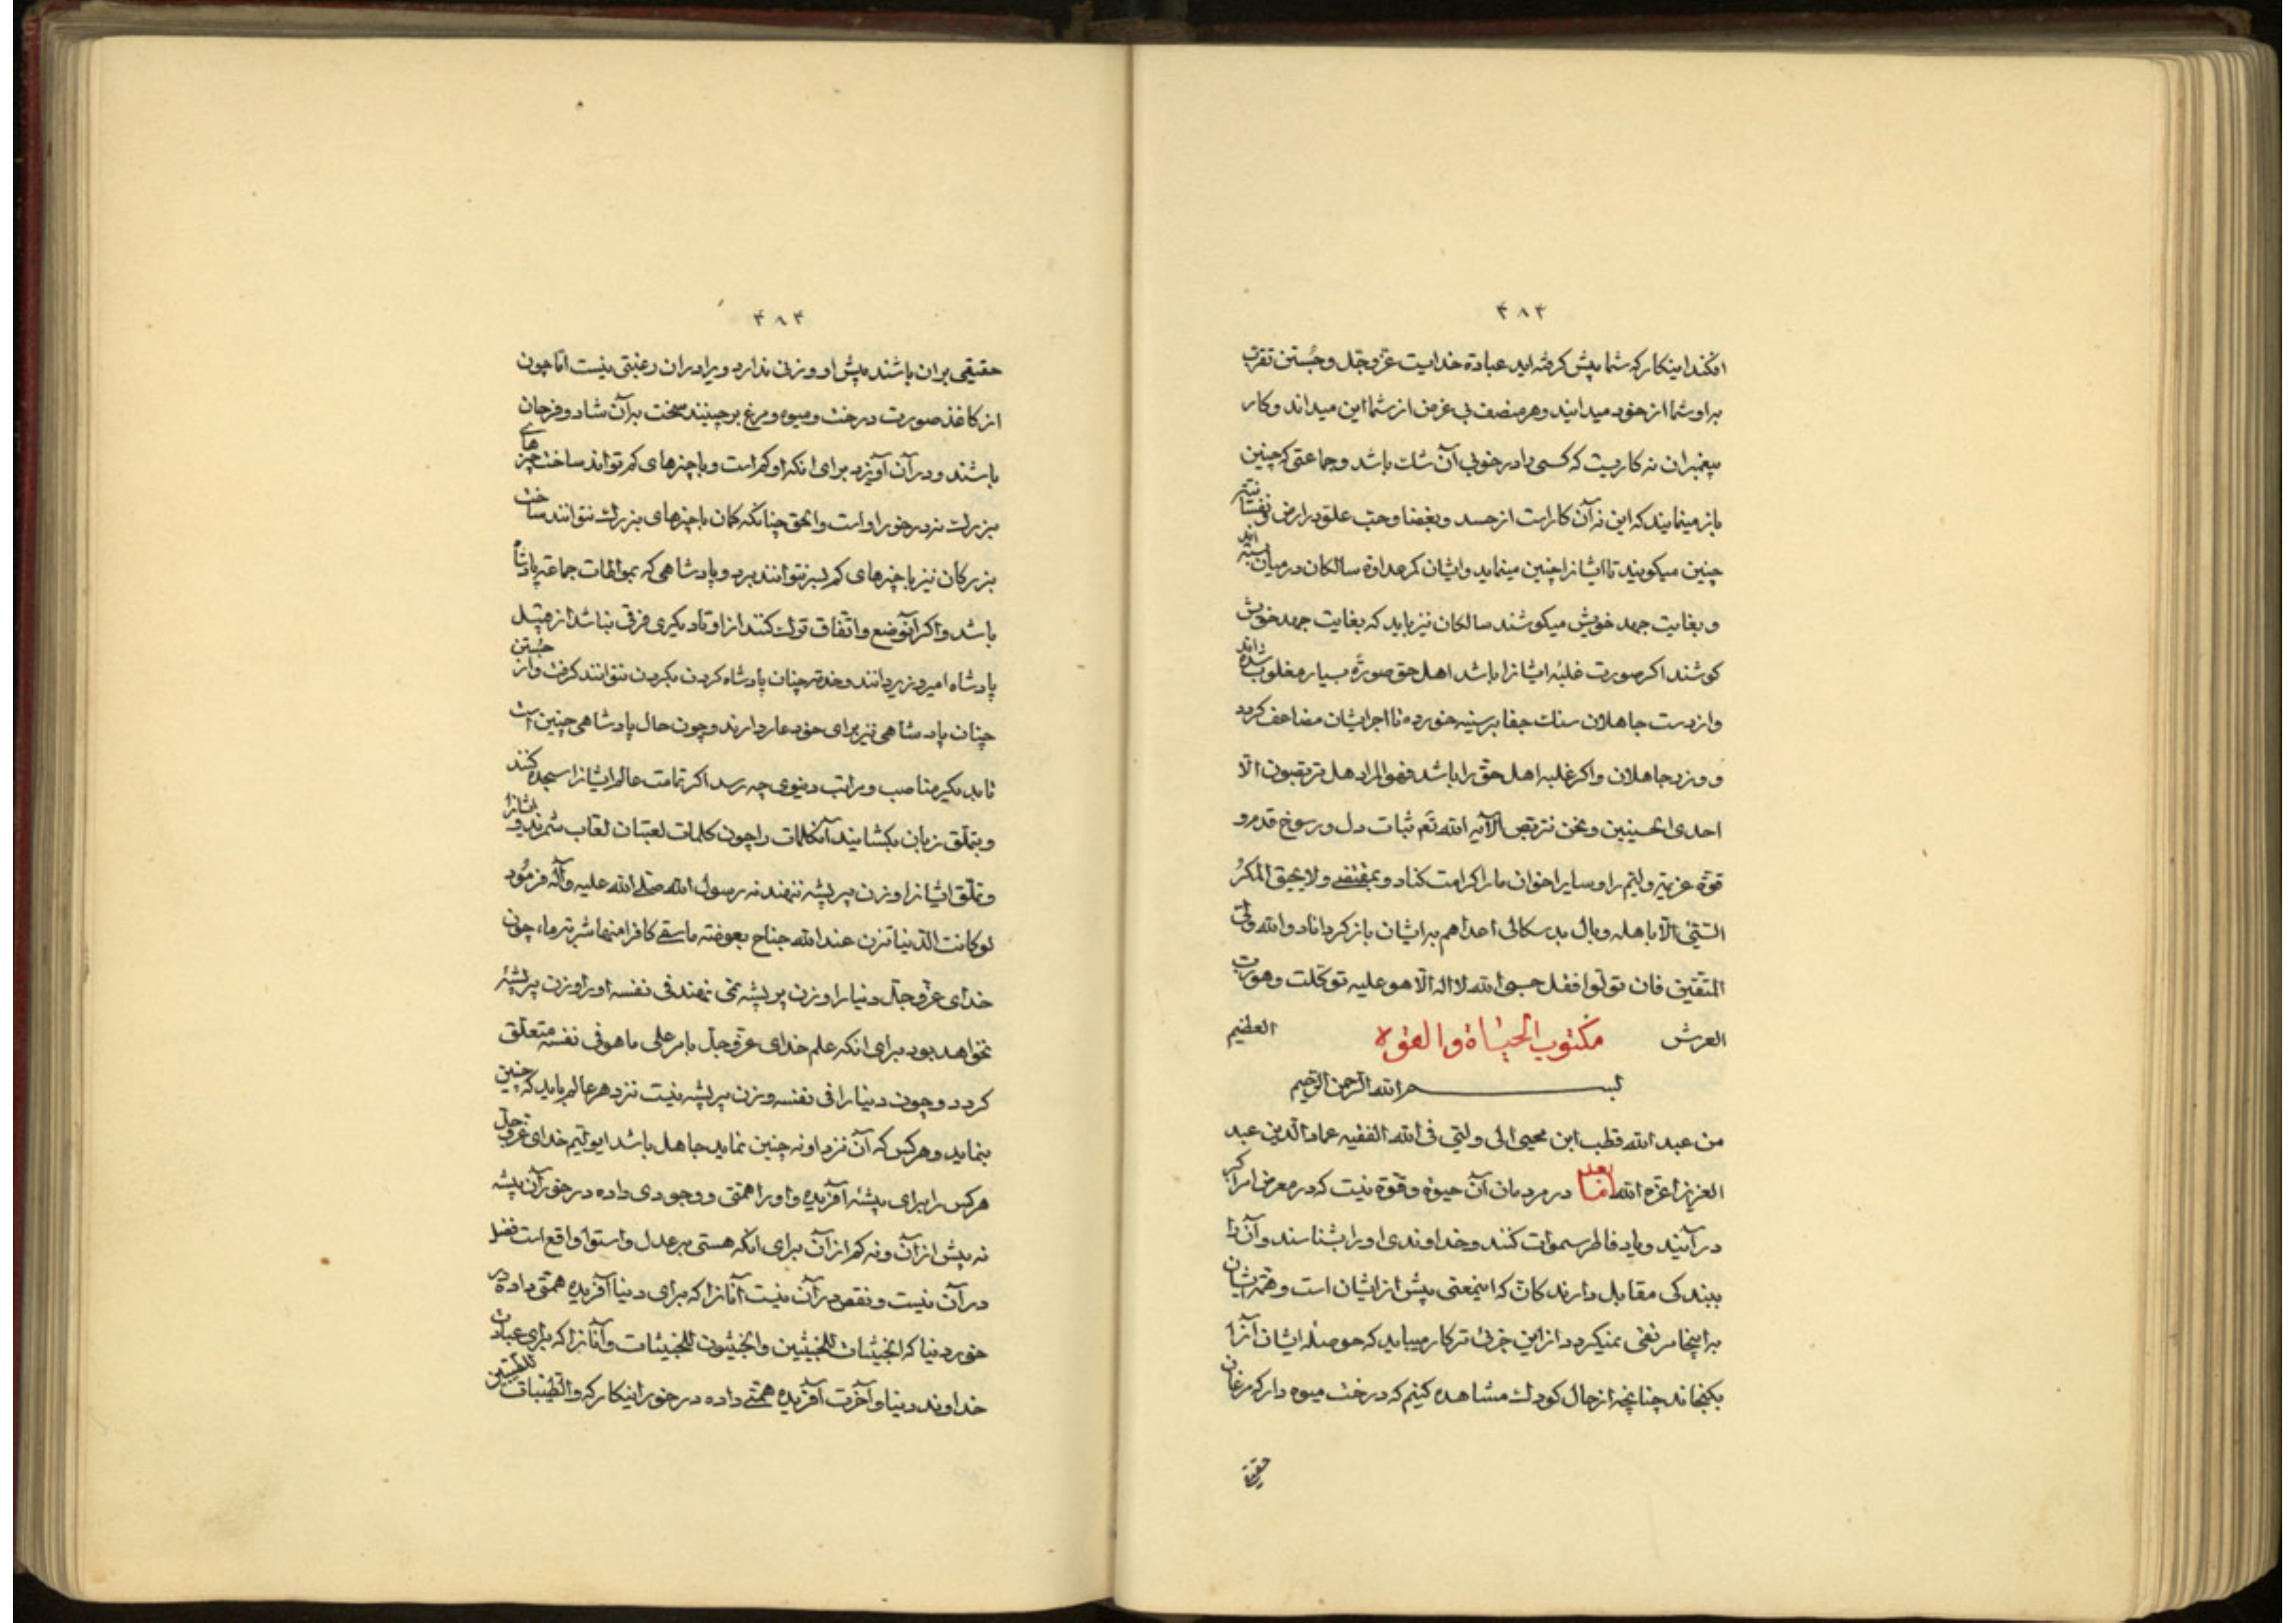 ۴۸۳
افکند اینکار که شما پیش کرفته‌اید عبادة خدایست عزّ و جّل و جُستن تقرب
باو شما از خود میدانید و هر منصف بی غرض از شما این میداند و کار
پیغمبران نه کاریست که کسی را در خوبی آن شک باشد و جماعتی که چنین
باز مینمایند که این نه آن کار است از حسد و بغضا و حبّ علوّ در ارض
چنین میکویند تا ایشانرا چنین مینماید و ایشان کر عداوة سالکان در میان بسته‌اند
و بغایت جهد خویش میکوشند سالکان نیز باید که بغایت جهد خویش
کوشند اکر صورت غلبه ایشانرا باشد اهل حق صورةً بسیار مغلوب شده‌اند
و از دست جاهلان سنک جفا بر سینه خورده تا اجر ایشان مضاعف کردد
و وزر جاهلان و اکر غلبه اهل حقّ را باشد فهو المراد هل تربّصون الّا
احدی الحسنیین و نحن نتربّص الآیه الله تع ثبات دل و رسوخ قدم و
قوّة عزیمة ولیّم را و سایر اخوان ما را کرامت کناد و بمقتضی و لا یحیق المکرُ
السّیّئ الّا باهله وبال بد سکالی اعدا هم بایشان باز کرداناد و الله ولیّ
المتّقین فان تولّوا فقل حسبی الله لا اله الّا هو علیه توکّلت و هو ربّ
العرش مکتوب الحیٰاة و القوة العظیم
بسم الله الرّحمن الرّحیم
من عبد الله قطب ابن محیی الی ولیّی فی الله الفقیه عماد الدّین عبد
العزیز اعزّه الله امّا بعد در مردمان آن حیوة و قوّة نیست که در معرض امر اکبر
در آیند و یاد فاطر سموات کنند و خداوندی او را بشناسند و آن را
ببندکی مقابل دارند کانّ که اینمعنی پیش از ایشان است و همّة ایشان
باینجا مرتقی نمیکردد از این جزئی تر کار میباید که حوصلهٔ ایشان آنرا
بکنجاند چنانچه از حال کودک مشاهده کنیم که درخت میوه دار که مرغان
حقیقی
۴۸۴
حقیقی بران باشند پیش او وزنی ندارد و ویرا دران رغبتی نیست امّا چون
از کاغذ صورت درخت و میوه و مرغ بر چینند سخت بر آن شاد و فرحان
باشند و در آن آویزد برای انکه او کم است و با چیزهای کم تواند ساخت چیزهای
بزرک نه در خور او است و الحق چنانکه کمان با چیزهای بزرک نتوانند ساخت
بزرکان نیز با چیزهای کم بسر نتوانند برد و پادشاهی که بمواطات جماعتی پادشاه
باشد و اکر آنوضع و اتفاق ترک کنند از او تا دیکری فرقی نباشد از قبیل
پادشاه امیر وزیر دانند و خدمة چنان پادشاه کردن بکردن نتوانند کرفت و از جُستن
چنان پادشاهی نیز برای خود عار دارند و چون حال پادشاهی چنین است
تا بدیکر مناصب و مراتب دنیوی چه رسد اکر تمامت عالم ایشانرا سجده کنند
و بتملّق زبان بکشایند آنکلمات را چون کلمات لعبتان لعّاب شمرند و ایشانرا
و تملّق ایشانرا وزن پر پشه ننهند نه رسول الله صلّی الله علیه و آله فرمود
لو کانت الدّنیا تزن عند الله جناح بعوضة ما سقی کافرا منها شربة ماء چون
خدای عزّ و جلّ دنیا را وزن پر پشه نمی نهند فی نفسه او را وزن پر پشهٔ
نخواهد بود برای انکه علم خدای عزّ و جلّ بامر علی ما هو فی نفسه متعلّق
کردد و چون دنیا را فی نفسه وزن پر پشه نیست نزد هر عالم باید که چنین
بنماید و هر کس که آن نزد او نه چنین نماید جاهل باشد ای ولیّم خدای عزّ و جلّ
هر کس را برای پیشهٔ آفریده و او را همّتی و وجودی داده در خور آن پیشه
نه بیش از آن و نه کم از آن برای انکه هستی بر عدل و استوا واقع است فضل
در آن نیست و نقص در آن نیست آنانرا که برای دنیا آفریده همّتی داده در
خور دنیا که الخبیثات للخبیثین و الخبیثون للخبیثات و آنانرا که برای عبادت
خداوند دنیا و آخرت آفریده همّتی داده در خور اینکار که و الطّیّبات للطّیّبین